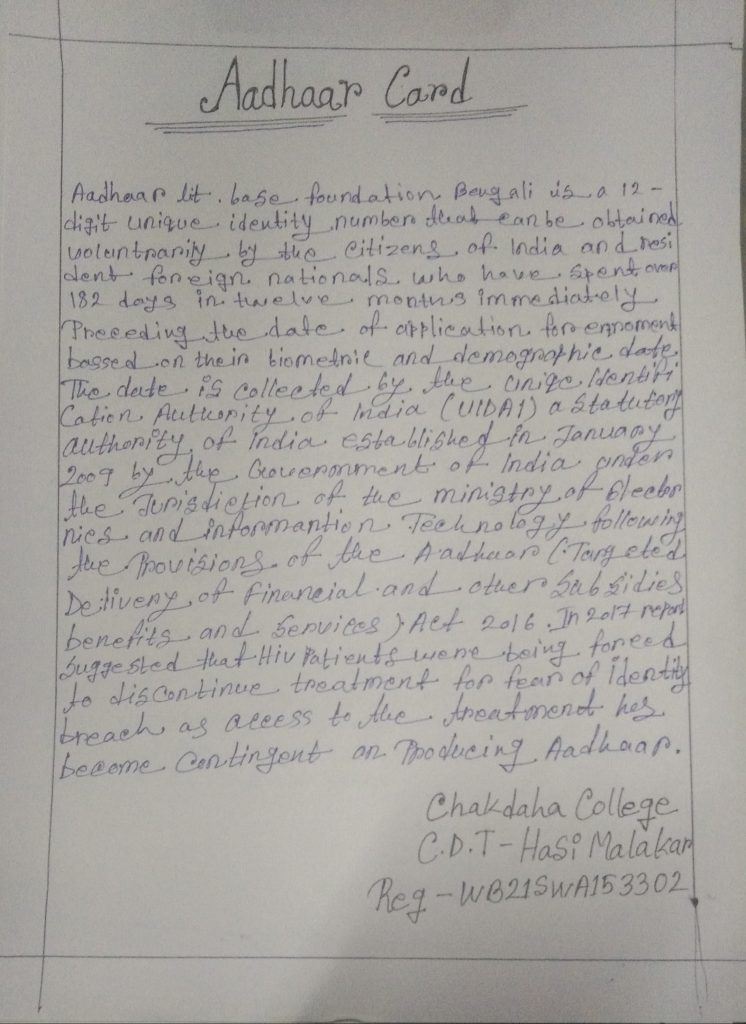 Aadhaar Card
Aadhaar lit. base foundation Bengali is a 12-
digit unique identity number that can be obtained
voluntrarily by the citizens of India and resi
dent foreign nationals who have spent over
182 days in twelve months immediately
Preceding the date of application for ennoment
bassed on their biometric and demographic date.
The date is collected by the uniqe Identifi
cation Authority of India (UIDAI) a statutory
authority of India established in January
2009 by the Goveronment of India under
the Jurisdiction of the ministry of Electro
nics and informantion Technology following
the Provisions of the Aadhaar (Targeted
Delivery of Financial and other Subsidies
benefits and Services) Act 2016. In 2017 report
Suggested that HIV Patients were being forced
to discontinue treatment for fear of identity
breach as access to the treatment has
become contingent on Producing Aadhaar.
Chakdaha College
C.D.T - Hasi Malakar
Reg - WB21SWA153302